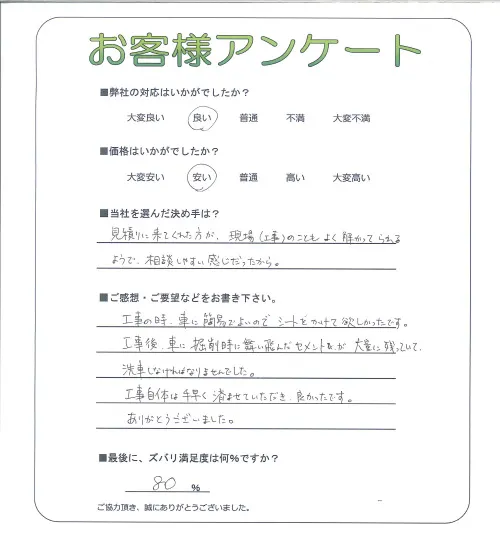 お客様アンケート
■弊社の対応はいかがでしたか?
大変良い 良い 普通 不満 大変不満
■価格はいかがでしたか?
大変安い 安い 普通 高い 大変高い
■当社を選んだ決め手は?
見積りに来てくれた方が、現場(工事)のこともよく解かってられる
ようで、相談しやすい感じだったから。
■ご感想・ご要望などをお書き下さい。
工事の時、車に簡易でよいのでシートをかけて欲しかったです。
工事後、車に掘削時に舞い飛んだセメントが大量に残っていて、
洗車しなければなりませんでした。
工事自体は手早く済ませていただき、良かったです。
ありがとうございました。
■最後に、ズバリ満足度は何%ですか?
80 %
ご協力頂き、誠にありがとうございました。